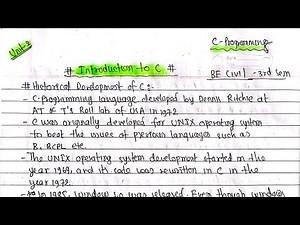 Unit:3
C-Programming
# Introduction to C #
BE Civil - 3rd Sem
# Historical Development of C:-
- C-Programming language developed by Dennis Ritchie at
AT & T's Bell lab of USA in 1972
- C was originally developed for UNIX operating system
to beat the issues of previous languages such as
B, BCPL etc.
- The UNIX operating system development started in the
year 1969, and its code was rewritten in C in the
year 1972.
- In 1985, window 1.0 was released. Even though windows